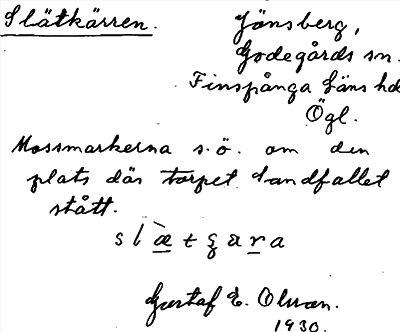 Slätkärren. Jänsberg,
Godegårds sn.
Finspånga läns hd
Ögl.
Mossmarkerna s.ö. om den
plats där torpet Sandfallet
stått.
Gustaf E. Olsson.
1930.